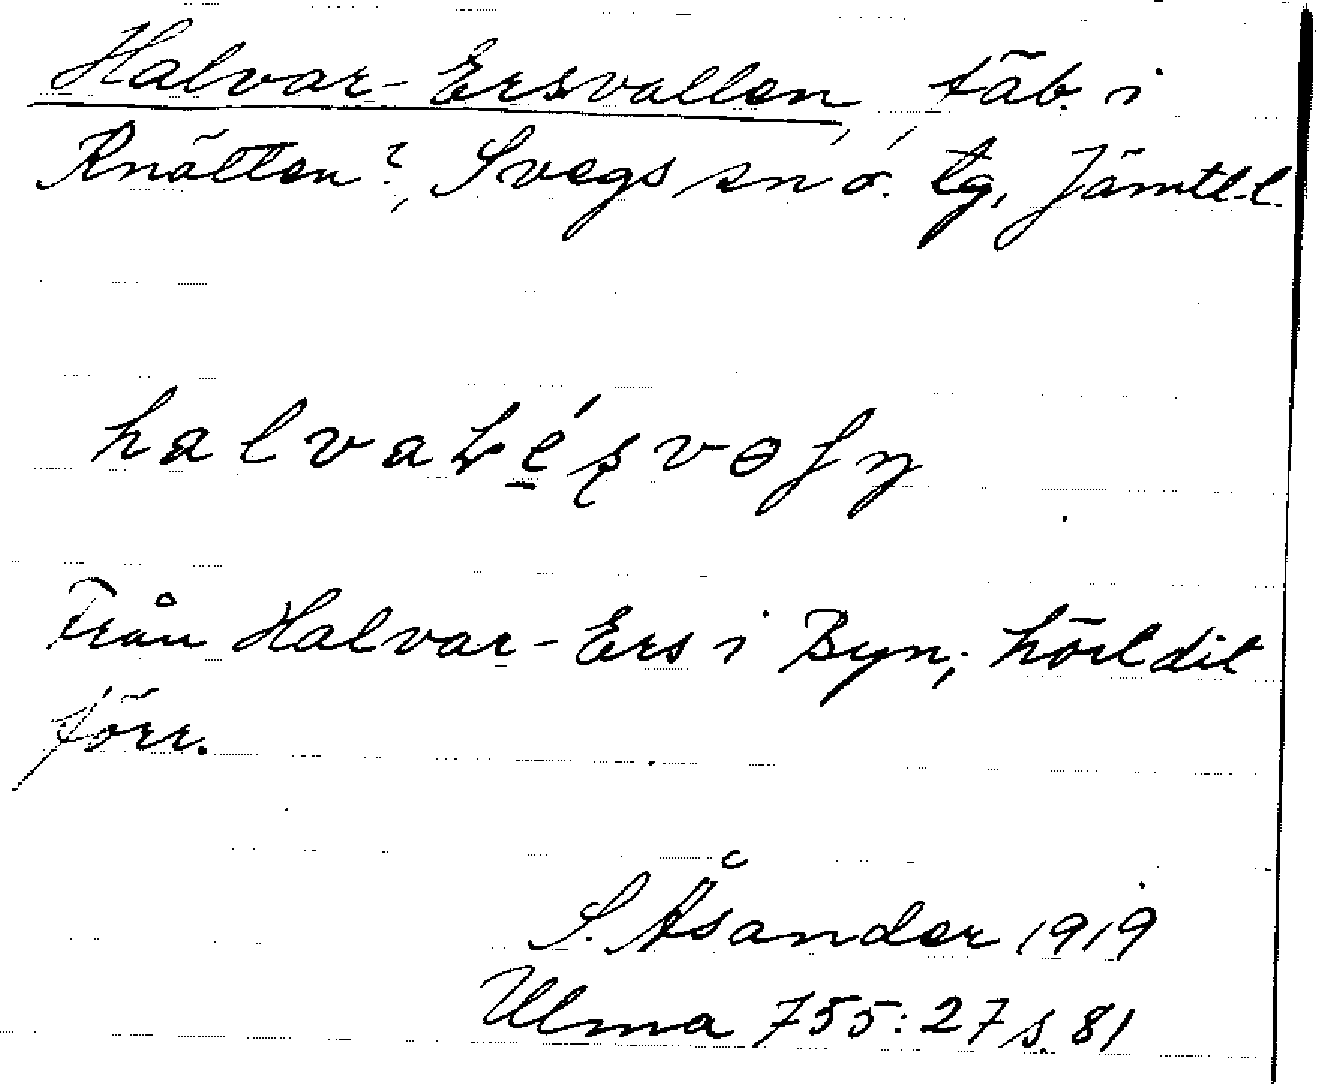 Halvar-Ersvallen, fäb. i
Knätten?, Svegs sn o. tg, Jämtl.l.
halvaréṣvoln
Från Halvar-Ers i Byn; hörl dit
förr.
S. Åsander 1919
Ulma 755:27 s. 81